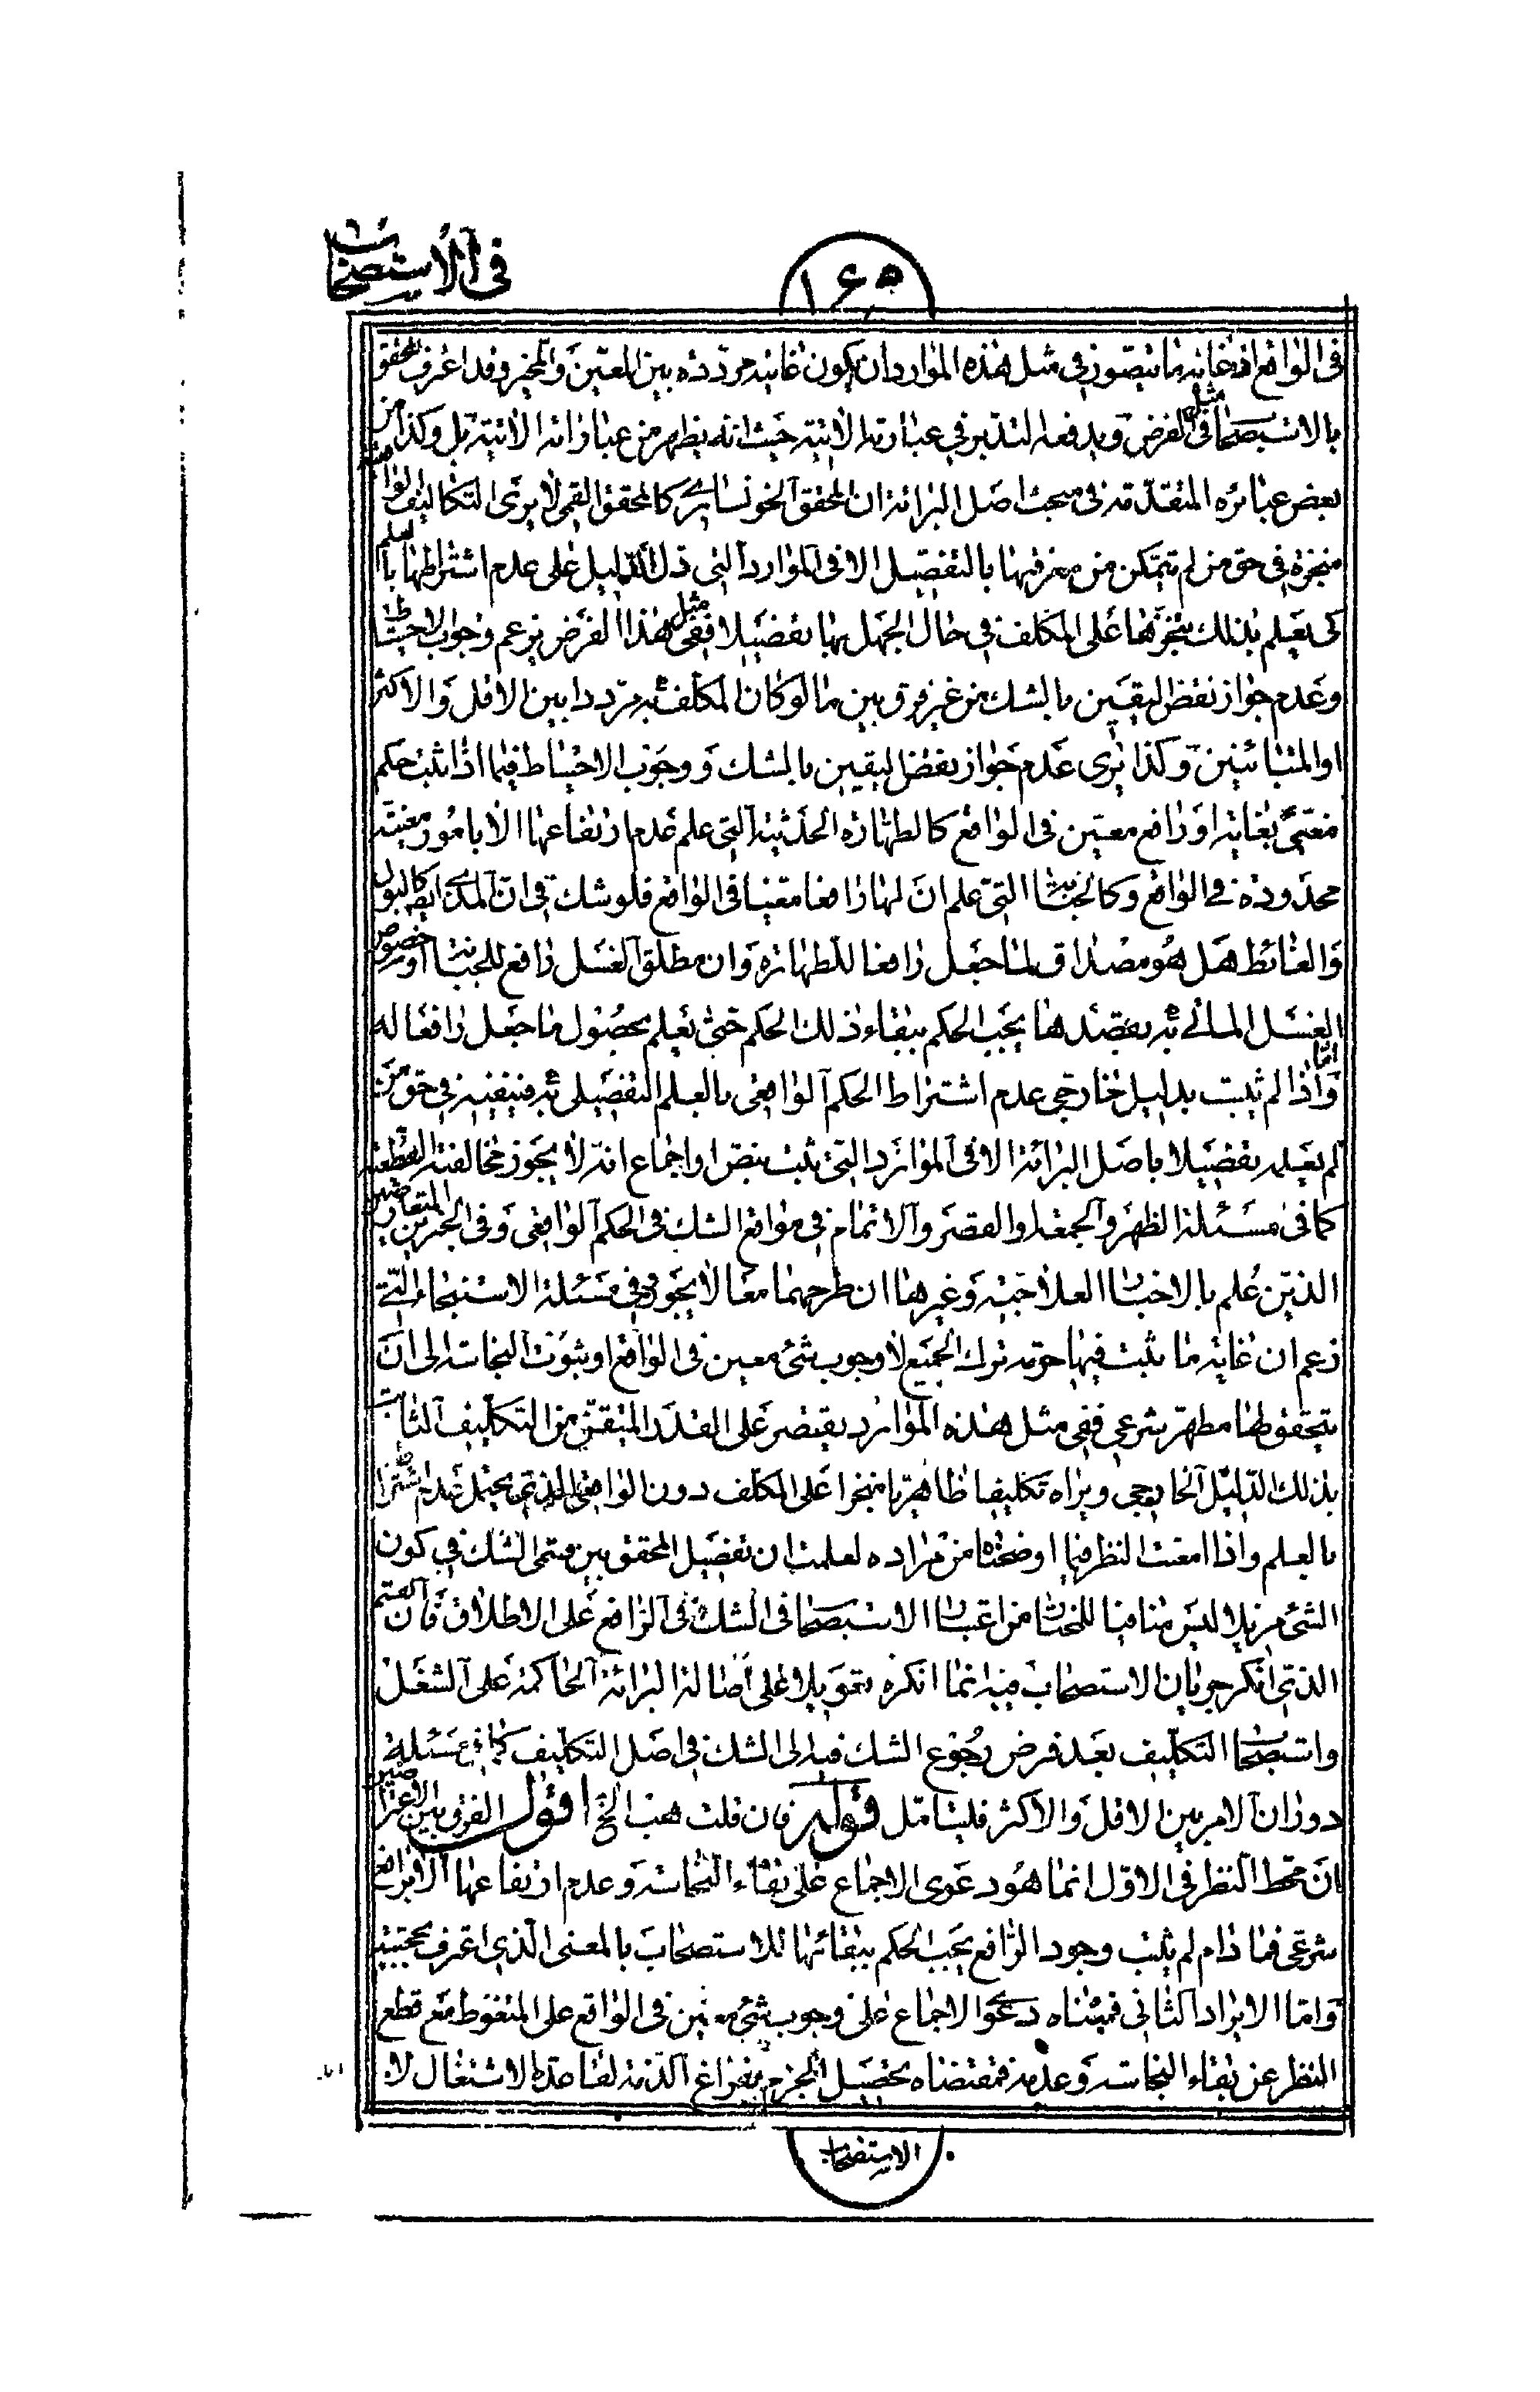 في الاستصحاب
١۶۵
في الواقع اذ غاية ما يتصوّر في مثل هذه الموارد ان يكون غايته مردّدة بين المعيّن والمخيّر وقد اعرف المحقق
بالاستصحاب في مثل الفرض ويدفعه التدبّر في عبارته الاتية حيث انه يظهر من عباراته الاتية بل وكذا من
بعض عبائره المتقدّمة في مبحث اصل البرائة ان المحقق الخونساري كالمحقق القمي لا يرى التكاليف الواقعية
منجزة في حق من لم يتمكن من معرفتها بالتفصيل الا في الموارد التي دل الدّليل على عدم اشتراطها بالعلم
كي يعلم بذلك تنجّزها على المكلف في حال الجهل بها تفصيلا ففي مثل هذا الفرض يزعم وجوب الاحتياط
وعدم جواز نقض اليقين بالشك من غير فرق بين ما لو كان المكلف به مردّدا بين الاقل والاكثر
او المتبائنين وكذا يرى عدم جواز نقض اليقين بالشك ووجوب الاحتياط فيما اذا ثبت حكم
مغيّى بغاية او رافع معيّن في الواقع كالطهارة الحدثية التي علم عدم ارتفاعها الا بامور معينة
محدودة في الواقع وكالجنابة التي علم ان لها رافعا معيّنا في الواقع فلو شك في ان المذي ايضا كالبول
والغائط هل هو مصداق لما جعل رافعا للطهارة وان مطلق الغسل رافع للجنابة او خصوص
الغسل الماتي به بقصدها يجب الحكم ببقاء ذلك الحكم حتى يعلم بحصول ما جعل رافعا له
وامّا اذا لم يثبت بدليل خارجي عدم اشتراط الحكم الواقعي بالعلم التفصيلي به فينفيه في حق من
لم يعلمه تفصيلا باصل البرائة الا في الموارد التي ثبت بنصّ او اجماع انه لا يجوز مخالفته القطعية
كما في مسئلة الظهر والجمعة والقصر والاتمام في مواقع الشك في الحكم الواقعي وفي الخبرين المتعارضين
الذين علم بالاخبار العلاجية وغيرها ان طرحهما معا لا يجوز وفي مسئلة الاستنجاء التي
زعم ان غاية ما يثبت فيها حرمة ترك الجميع لا وجوب شئ معين في الواقع او ثبوت النجاسة الى ان
يتحقق لها مطهّر شرعي ففي مثل هذه الموارد يقتصر على القدر المتيقن من التكليف الثابت
بذلك الدّليل الخارجي ويراه تكليفا ظاهريّا منجزا على المكلف دون الواقعي الذي يحتمل عدم اشتراطه
بالعلم واذا امعنت النظر فيما اوضحناه من مراده لعلمت ان تفصيل المحقق بين قسمي الشك في كون
الشئ مزيلا ليس منافيا للمختار من اعتبار الاستصحاب في الشك في الرافع على الاطلاق فان القسم
الذي انكر جريان الاستصحاب فيه انما انكره تعويلا على اصالة البرائة الحاكمة على الشغل
واستصحاب التكليف بعد فرض رجوع الشك فيه الى الشك في اصل التكليف كما في مسئلة
دوران الامر بين الاقل والاكثر فليتامّل قوله فان قلت هب الخ اقول الفرق بين الاعتراضين
ان محط النظر في الاوّل انما هو دعوى الاجماع على بقاء النجاسة وعدم ارتفاعها الا برافع
شرعي فما دام لم يثبت وجود الرّافع يجب الحكم ببقائها للاستصحاب بالمعنى الذي اعترف بحجيته
وامّا الايراد الثاني فمبناه دعوى الاجماع على وجوب شئ معين في الواقع على المتغوط مع قطع
النظر عن بقاء النجاسة وعدمه فمقتضاه تحصيل الجزم بفراغ الذمة لقاعدة الاشتغال لا
الاستصحاب